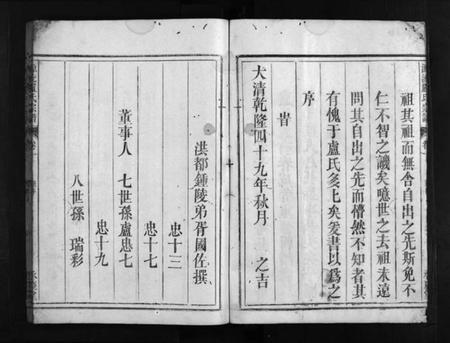 祖其祖而無舍自出之先斯免不
仁不智之譏矣噫世之去祖未遠
問其自出之先而懵然不知者其
有愧于盧氏多七矣爰書以為之
序
旹
大清乾隆四十九年秋月　之吉
洪都鍾陵弟胥國佐撰
忠十三
董事人　七世孫盧忠七
忠十七
忠十九
八世孫　瑞彩